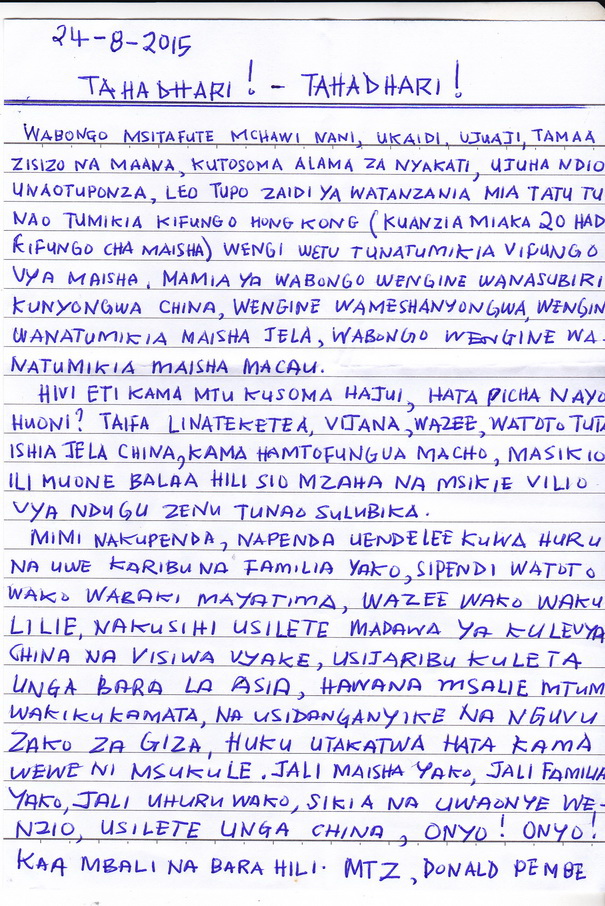 24-8-2015
TAHADHARI! - TAHADHARI!
WABONGO MSITAFUTE MCHAWI NANI, UKAIDI, UJUAJI, TAMAA
ZISIZO NA MAANA, KUTOSOMA ALAMA ZA NYAKATI, UJUHA NDIO
UNAOTUPONZA, LEO TUPO ZAIDI YA WATANZANIA MIA TATU TU
NAO TUMIKIA KIFUNGO HONG KONG (KUANZIA MIAKA 20 HAD
KIFUNGO CHA MAISHA) WENGI WETU TUNATUMIKIA VIFUNGO
VYA MAISHA, MAMIA YA WABONGO WENGINE WANASUBIRI
KUNYONGWA CHINA, WENGINE WAMESHANYONGWA, WENGIN
WANATUMIKIA MAISHA JELA, WABONGO WENGINE WA-
NATUMIKIA MAISHA MACAU.
HIVI ETI KAMA MTU KUSOMA HAJUI, HATA PICHA NAYO
HUONI? TAIFA LINATEKETEA, VIJANA, WAZEE, WATOTO TUTA
ISHIA JELA CHINA, KAMA HAMTOFUNGUA MACHO, MASIKIO
ILI MUONE BALAA HILI SIO MZAHA NA MSIKIE VILIO
VYA NDUGU ZENU TUNAO SULUBIKA.
MIMI NAKUPENDA, NAPENDA UENDELEE KUWA HURU
NA UWE KARIBU NA FAMILIA YAKO, SIPENDI WATOTO
WAKO WABAKI MAYATIMA, WAZEE WAKO WAKU
LILIE, NAKUSIHI USILETE MADAWA YA KULEVYA
CHINA NA VISIWA VYAKE, USIJARIBU KULETA
UNGA BARA LA ASIA, HAWANA MSALIE MTUM
WAKIKUKAMATA, NA USIDANGANYIKE NA NGUVU
ZAKO ZA GIZA, HUKU UTAKATWA HATA KAMA
WEWE NI MSUKULE. JALI MAISHA YAKO, JALI FAMILIA
YAKO, JALI UHURU WAKO, SIKIA NA UWAONYE WE-
NZIO, USILETE UNGA CHINA, ONYO! ONYO!
KAA MBALI NA BARA HILI. MTZ, DONALD PEMBE